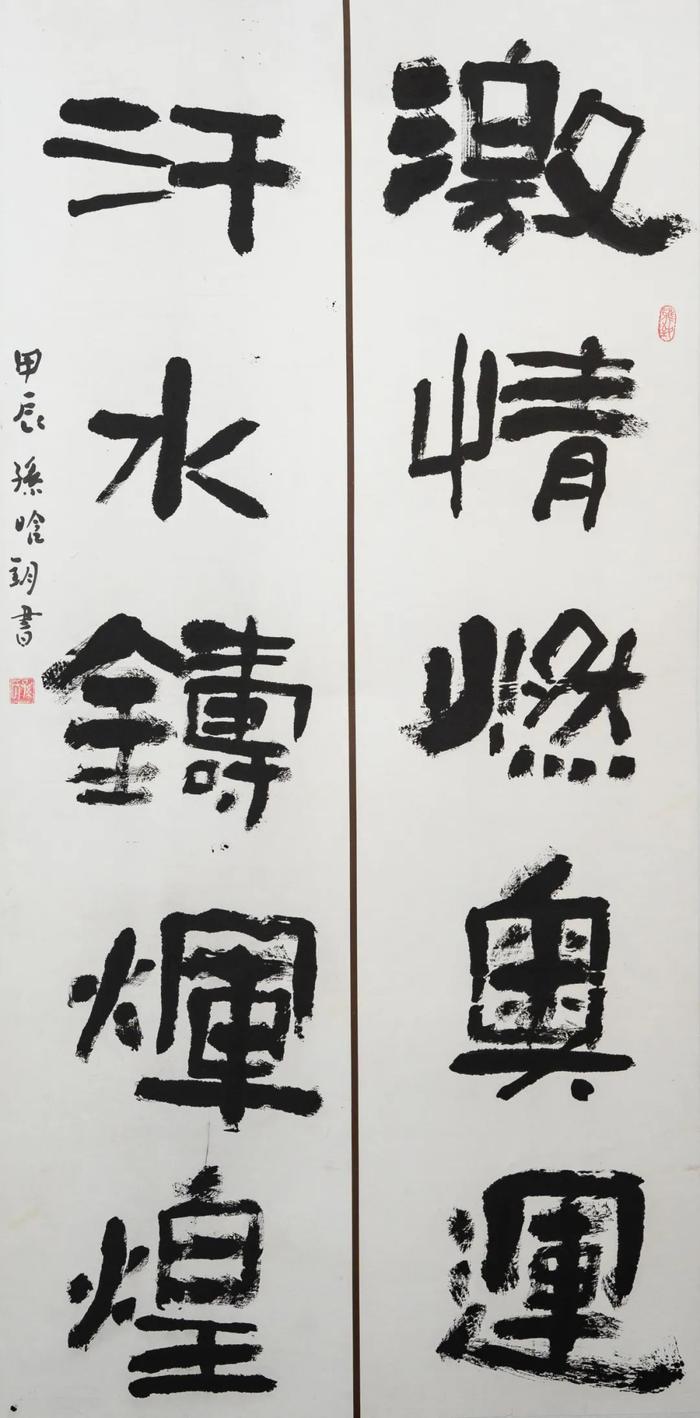 激情燃奥運
汗水鑄輝煌
甲辰 孫晗翊書